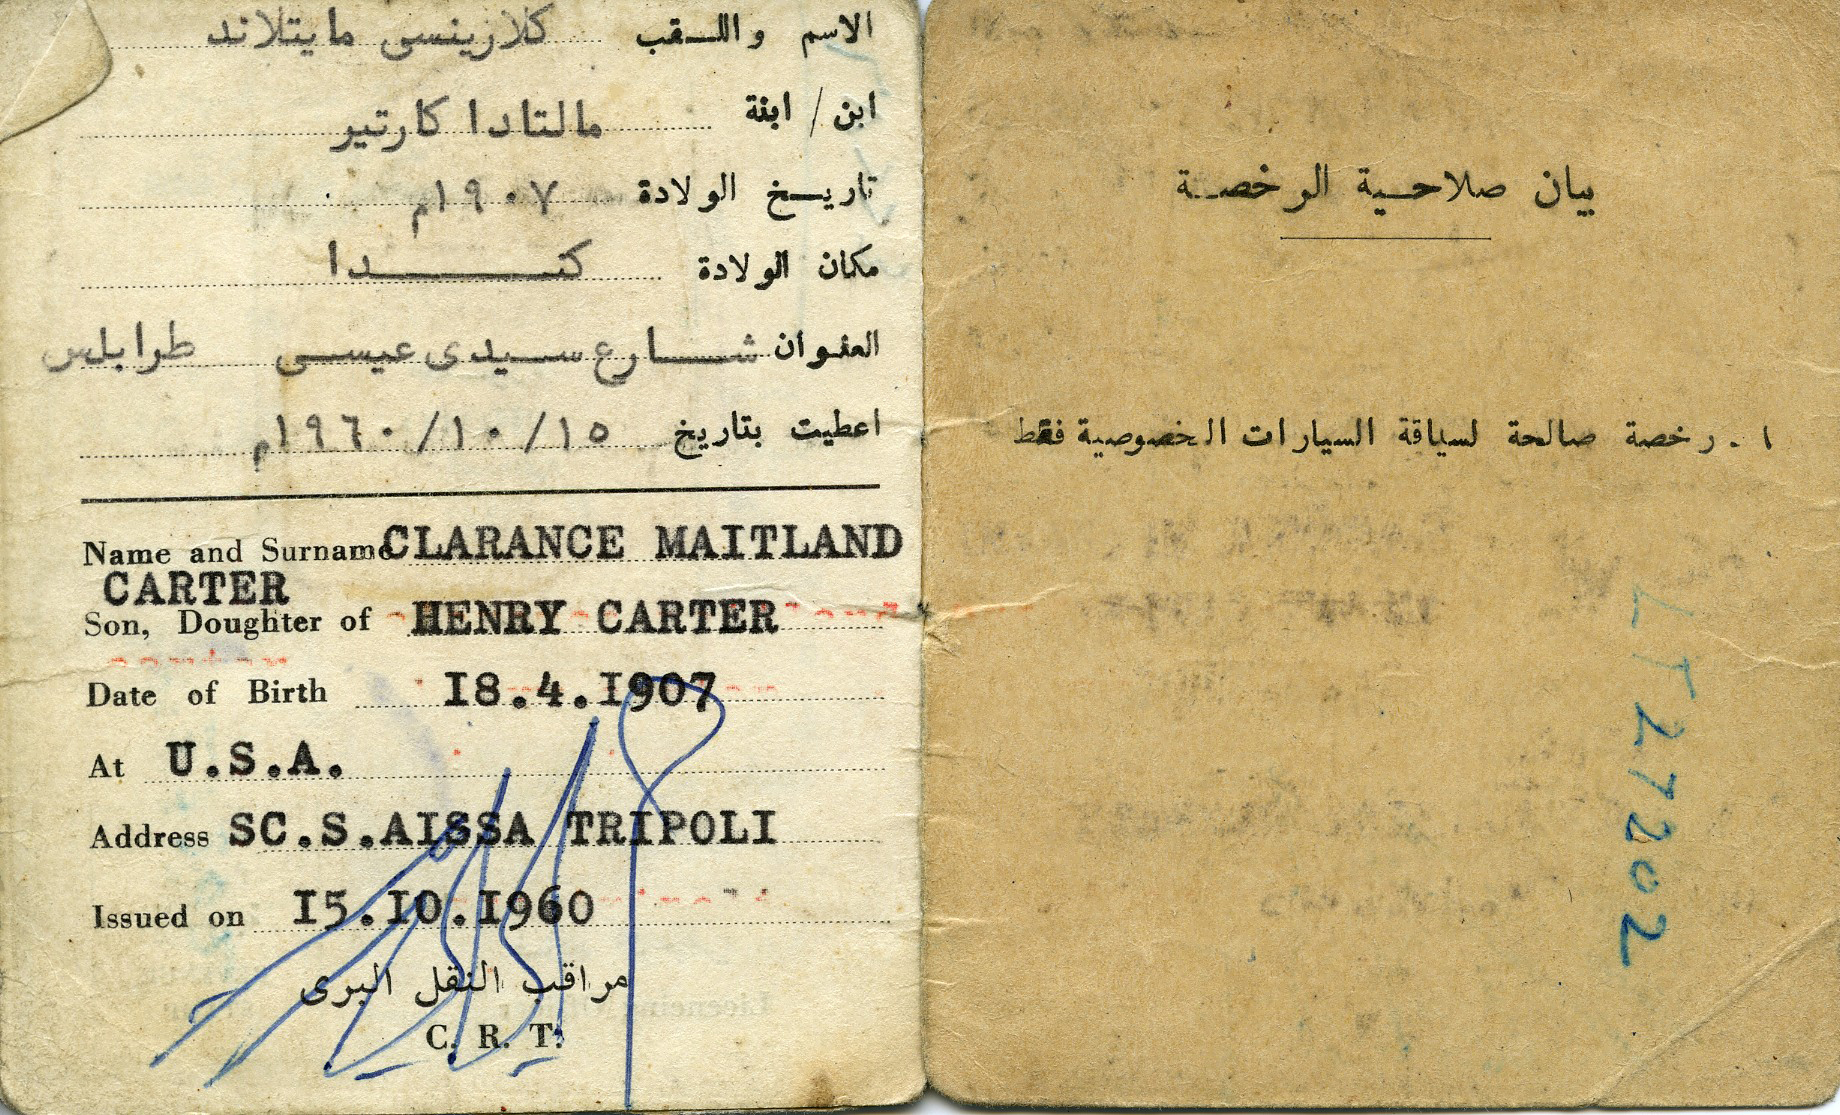 الاسم واللقب كلارينسى مايتلاند
ابن / ابنة مالتادا كارتير
تاريخ الولادة ١٩٠٧م
مكان الولادة كندا
العنوان شارع سيدى عيسى طرابلس
اعطيت بتاريخ ١٥/١٠/١٩٦٠م
Name and Surname CLARANCE MAITLAND
CARTER
Son, Doughter of HENRY CARTER
Date of Birth I8.4.I907
At U.S.A.
Address SC.S.AISSA TRIPOLI
Issued on I5.IO.I960
مراقب النقل البرى
C. R. T.
بيان صلاحية الرخصة
١ - رخصة صالحة لسياقة السيارات الخصوصية فقط
LT 27202